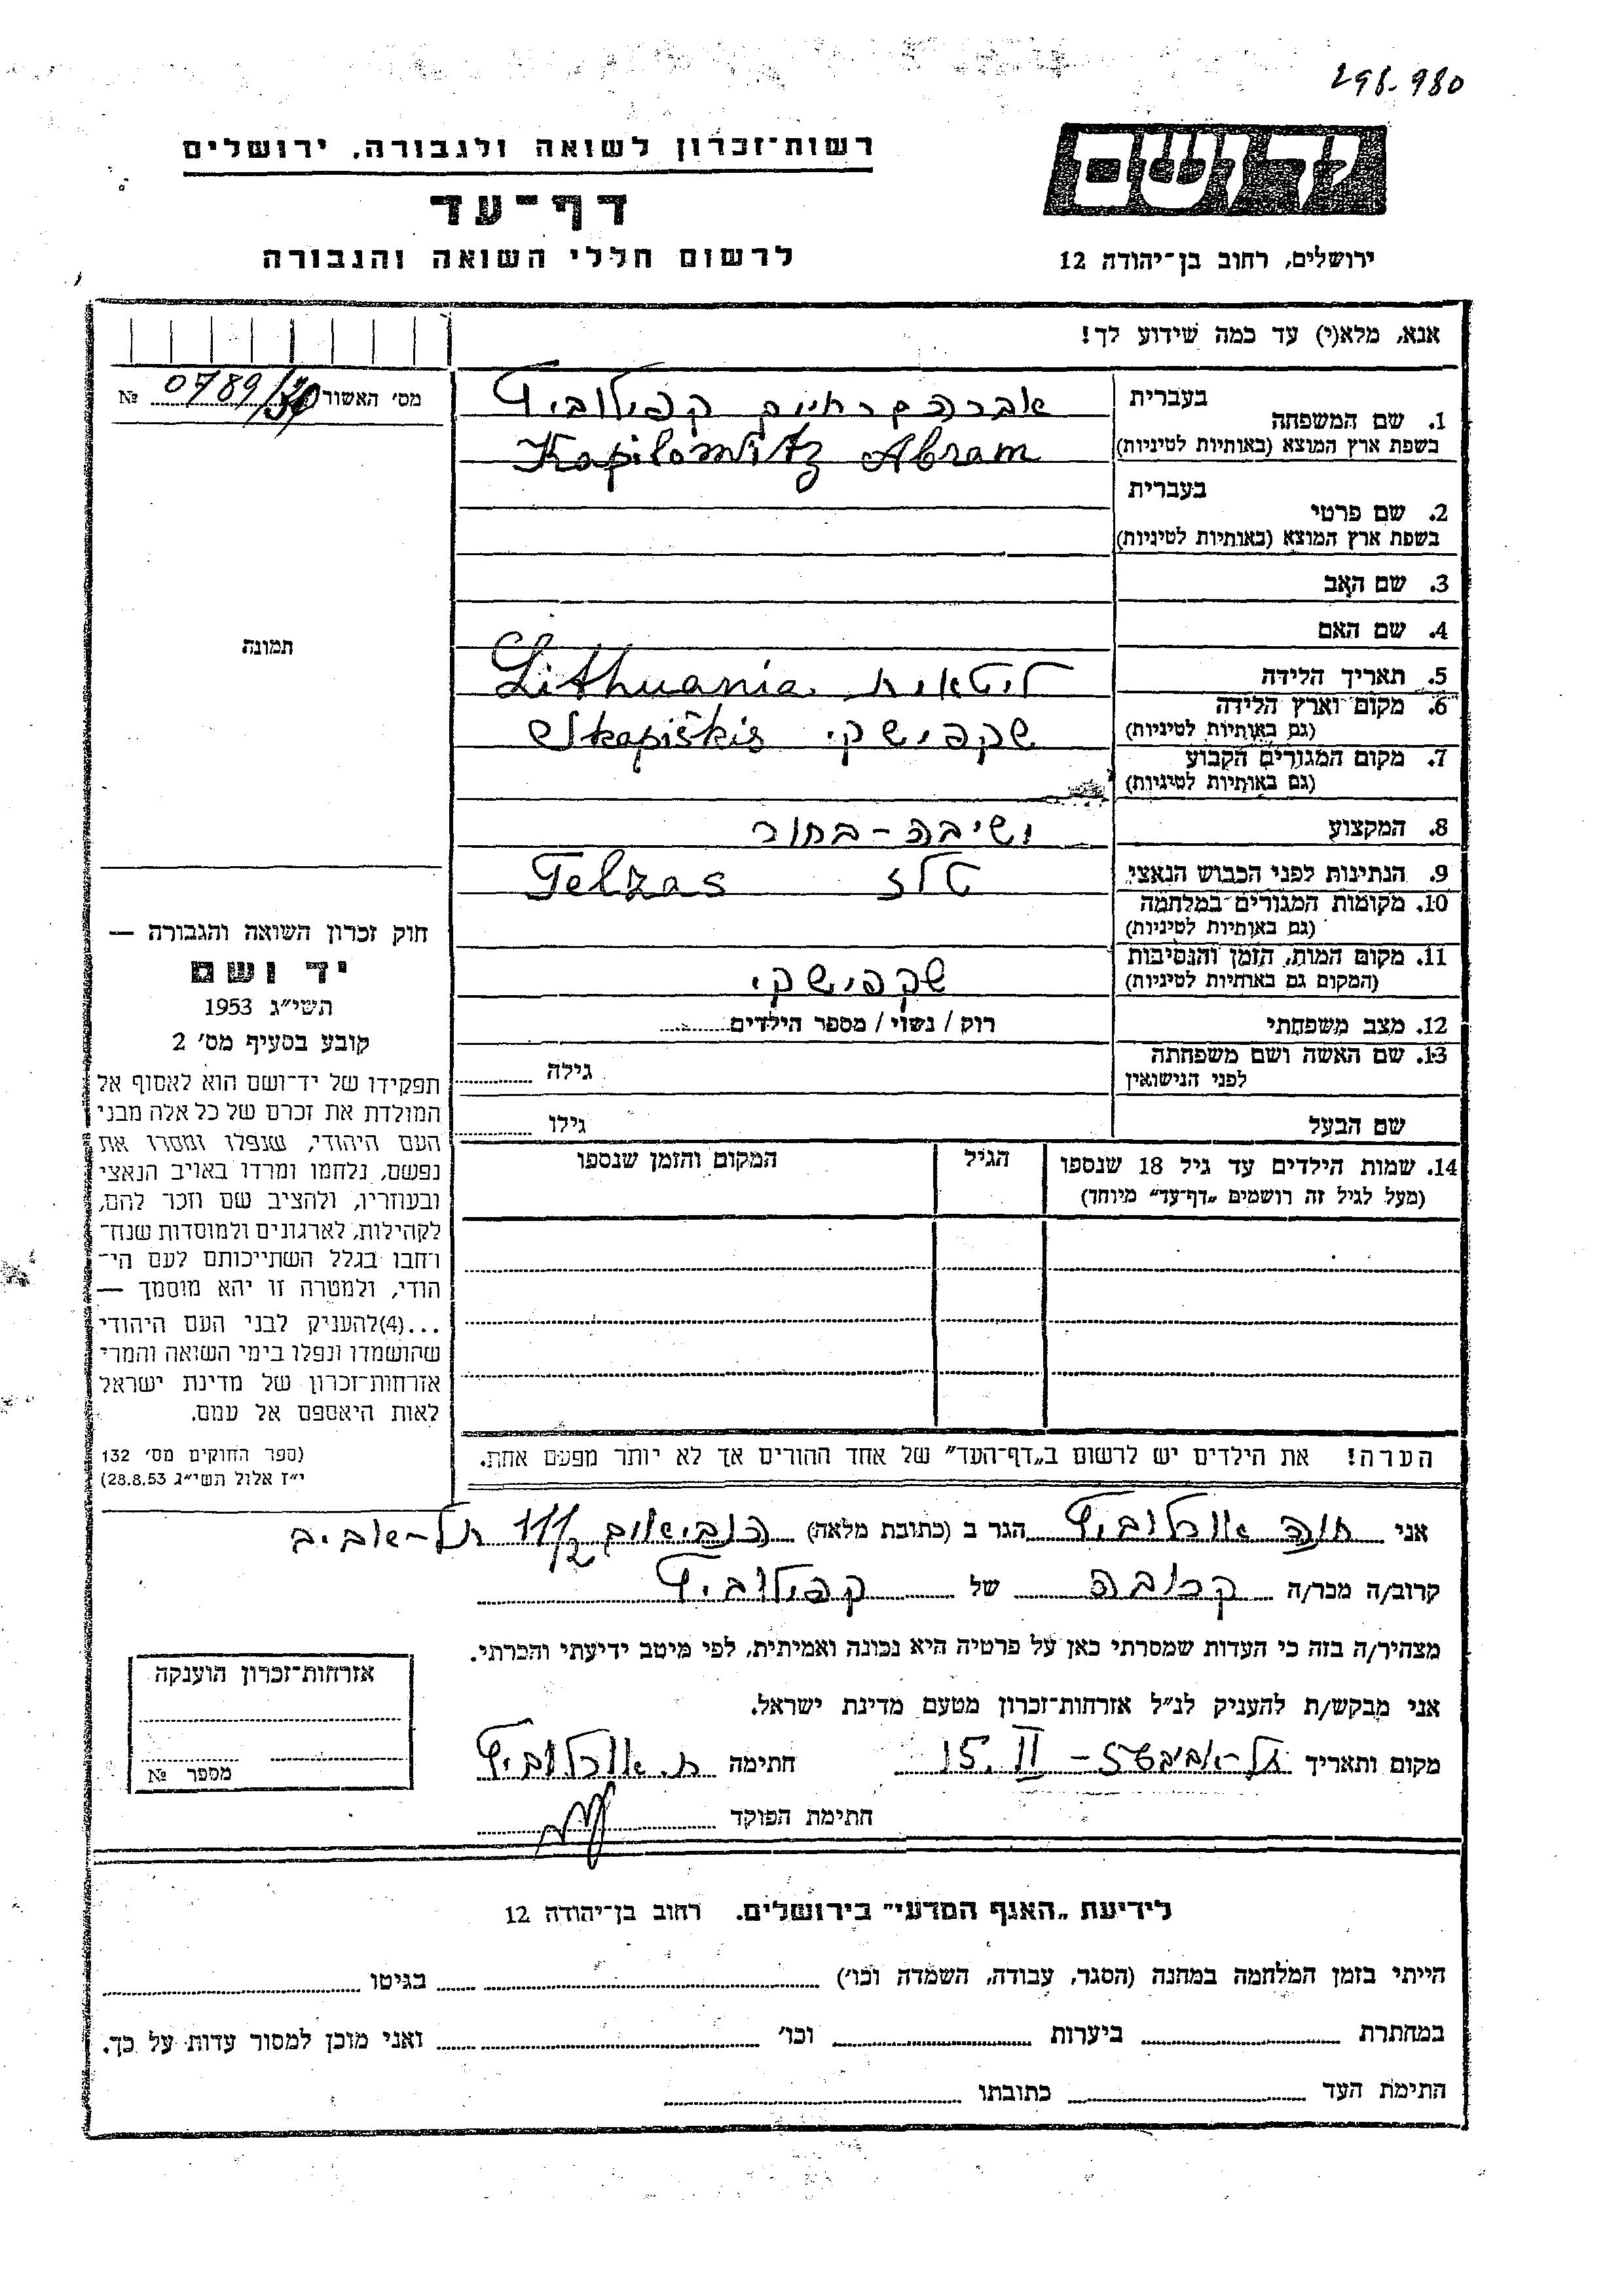 298-980
יד ושם
רשות־זכרון לשואה ולגבורה, ירושלים
דף־עד
לרשום חללי השואה והגבורה
ירושלים, רחוב בן־יהודה 12
אנא, מלא(י) עד כמה שידוע לך!
מס׳ האשור № 0789/30
1. שם המשפחה בעברית אברהם חיים קפילוביץ
בשפת ארץ המוצא (באותיות לטיניות) Kapilowitz Abram
2. שם פרטי בעברית
בשפת ארץ המוצא (באותיות לטיניות)
3. שם האב
4. שם האם
5. תאריך הלידה Lithuania ליטאית
6. מקום וארץ הלידה (גם באותיות לטיניות) Skapiškis שקפישקי
7. מקום המגורים הקבוע (גם באותיות לטיניות)
8. המקצוע ישיבה-בחור
9. הנתינות לפני הכבוש הנאצי Telzas טלז
10. מקומות המגורים במלחמה (גם באותיות לטיניות)
11. מקום המות, הזמן והנסיבות (המקום גם באותיות לטיניות) שקפישקי
12. מצב משפחתי רוק / נשוי / מספר הילדים
13. שם האשה ושם משפחתה לפני הנישואין גילה
שם הבעל גילו
14. שמות הילדים עד גיל 18 שנספו הגיל המקום והזמן שנספו
(מעל לגיל זה רושמים „דף־עד״ מיוחד)
תמונה
חוק זכרון השואה והגבורה —
יד ושם
תשי״ג 1953
קובע בסעיף מס׳ 2
תפקידו של יד־ושם הוא לאסוף אל
המולדת את זכרם של כל אלה מבני
העם היהודי, שנפלו ומסרו את
נפשם, נלחמו ומרדו באויב הנאצי
ובעוזריו, ולהציב שם וזכר להם,
לקהילות, לארגונים ולמוסדות שנח־
רחבו בגלל השתייכותם לעם הי־
הודי, ולמטרה זו יהא מוסמך —
...(4)להעניק לבני העם היהודי
שהושמדו ונפלו בימי השואה והמרי
אזרחות־זכרון של מדינת ישראל
לאות היאספם אל עמם.
(ספר החוקים מס׳ 132
י״ז אלול תשי״ג 28.8.53)
הערה! את הילדים יש לרשום ב„דף־העד״ של אחד ההורים אך לא יותר מפעם אחת.
אני חוה אורלוביץ הגר ב (כתובת מלאה) הנביאים 11/2 תל-אביב
קרוב/ה מכר/ה קרובה של קפילוביץ
מצהיר/ה בזה כי העדות שמסרתי כאן על פרטיה היא נכונה ואמיתית, לפי מיטב ידיעתי והכרתי.
אני מבקש/ת להעניק לנ״ל אזרחות־זכרון מטעם מדינת ישראל.
מקום ותאריך תל-אביב 15.II-57 חתימה ח. אורלוביץ
חתימת הפוקד
אזרחות־זכרון הוענקה
מספר №
לידיעת „האגף המדעי״ בירושלים. רחוב בן־יהודה 12
הייתי בזמן המלחמה במחנה (הסגר, עבודה, השמדה וכו׳) בגיטו
במחתרת ביערות וכו׳ ואני מוכן למסור עדות על כך.
חתימת העד כתובתו